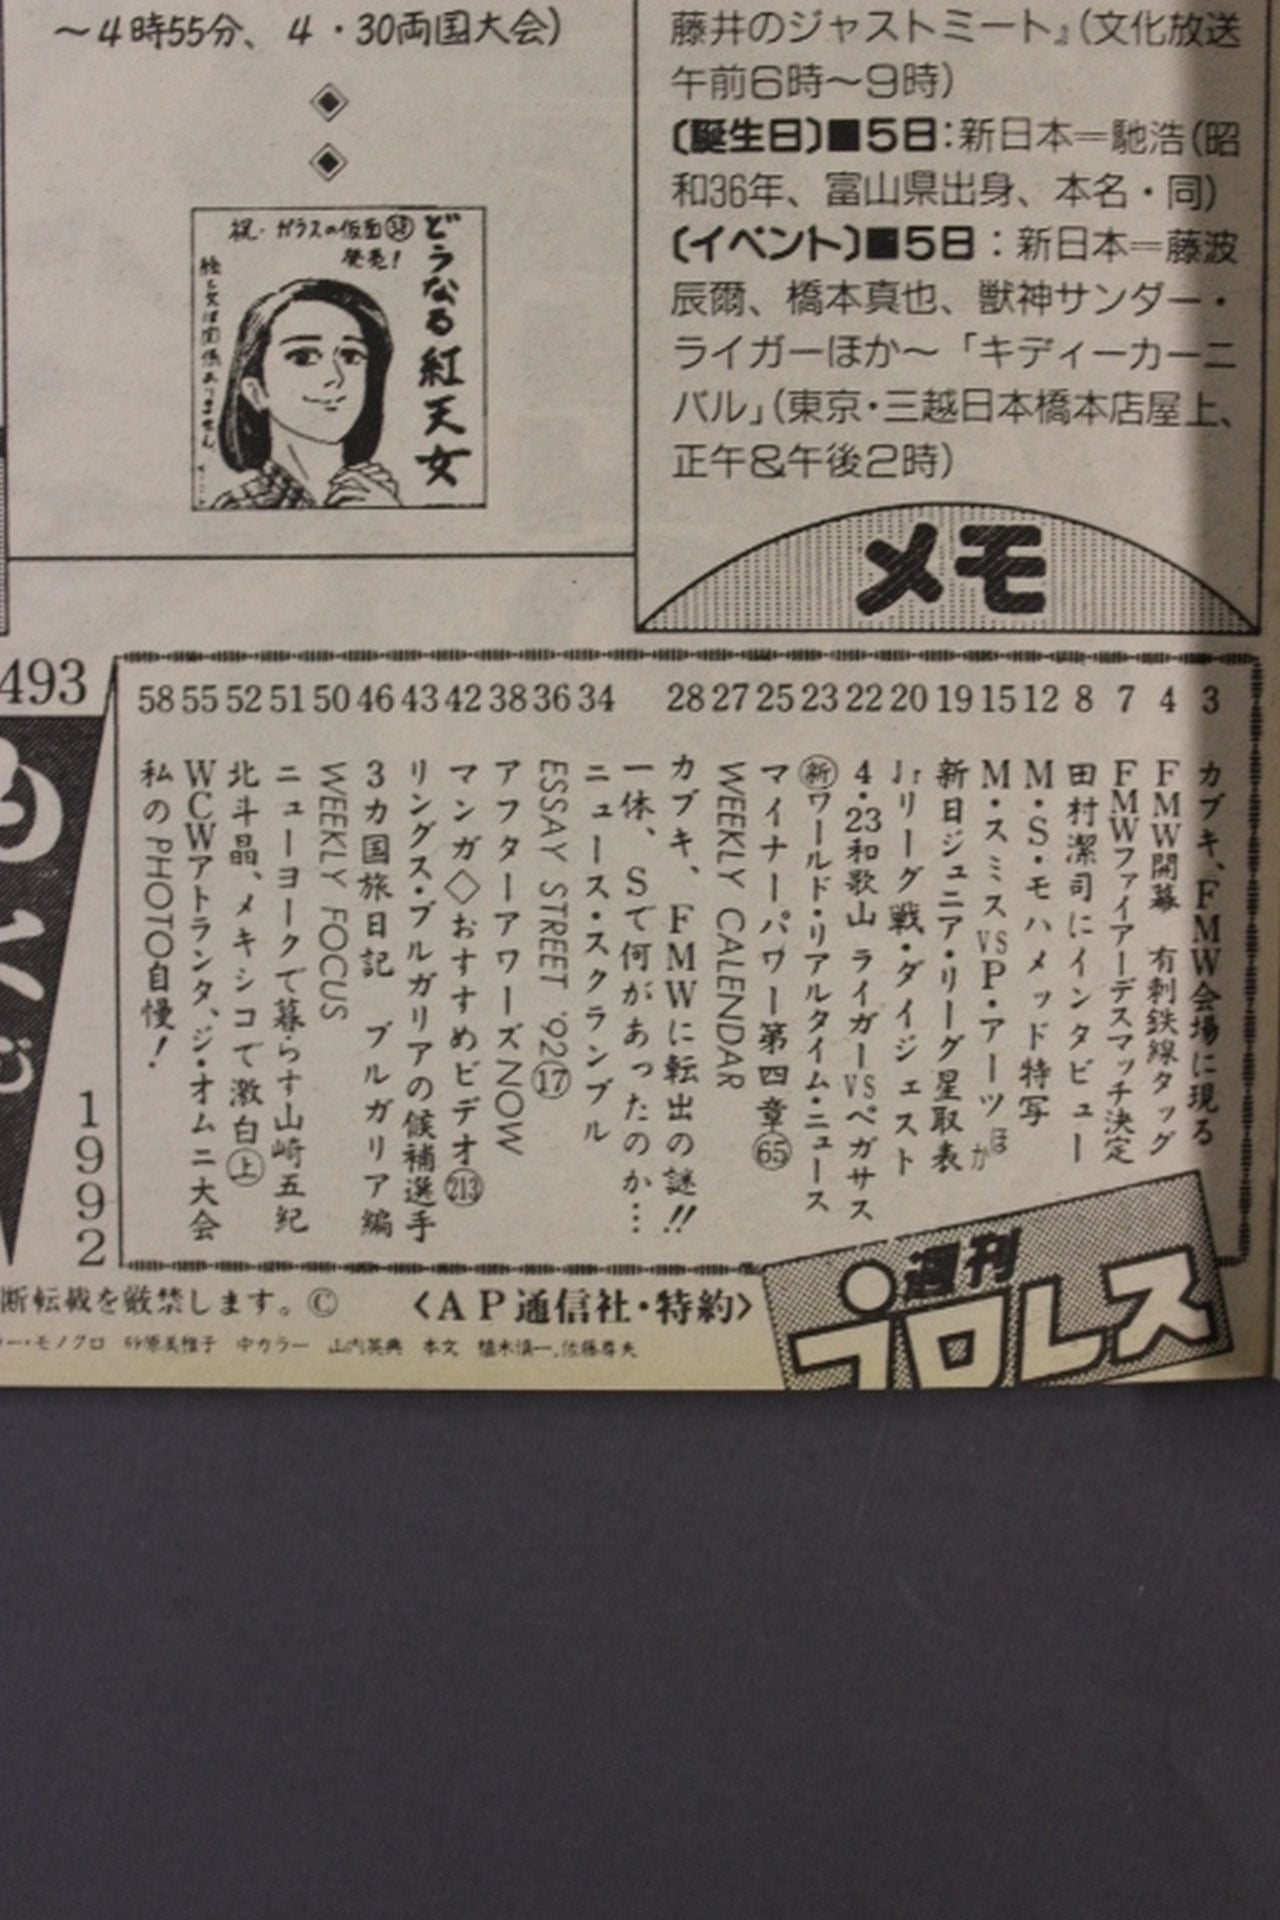 ～4時55分、4・30両国大会)
藤井のジャストミート』(文化放送
午前6時～9時)
〔誕生日〕■5日：新日本＝馳浩(昭
和36年、富山県出身、本名・同)
〔イベント〕■5日：新日本＝藤波
辰爾、橋本真也、獣神サンダー・
ライガーほか～「キディーカーニ
バル」(東京・三越日本橋本店屋上、
正午&午後2時)
メモ
どうなる紅天女
祝・ガラスの仮面㊳
発売!
絵と文は関係ありません
493
1992
3 カブキ、FMW会場に現る
4 FMW開幕 有刺鉄線タッグ
7 FMWファイアーデスマッチ決定
8 田村潔司にインタビュー
12 M・S・モハメッド特写
15 M・スミスVSP・アーツほか
19 新日ジュニア・リーグ星取表
20 Jrリーグ戦・ダイジェスト
22 4・23和歌山 ライガーVSペガサス
23 ㊟新ワールド・リアルタイム・ニュース
25 マイナーパワー第四章65
27 WEEKLY CALENDAR
28 カブキ、FMWに転出の謎!!
一体、Sで何があったのか…
34 ニュース・スクランブル
36 ESSAY STREET '92⑰
38 アフターアワーズNOW
42 マンガ◇おすすめビデオ213
43 リングス・ブルガリアの候補選手
46 3カ国旅日記 ブルガリア編
50 WEEKLY FOCUS
51 ニューヨークで暮らす山崎五紀
52 北斗晶、メキシコで激白㊤
55 WCWアトランタ、ジ・オムニ大会
58 私のPHOTO自慢!
週刊
プロレス
断転載を厳禁します。© 〈AP通信社・特約〉
ー・モノクロ 砂原美惟子 中カラー 山内英典 本文 植木慎一、佐藤尊夫